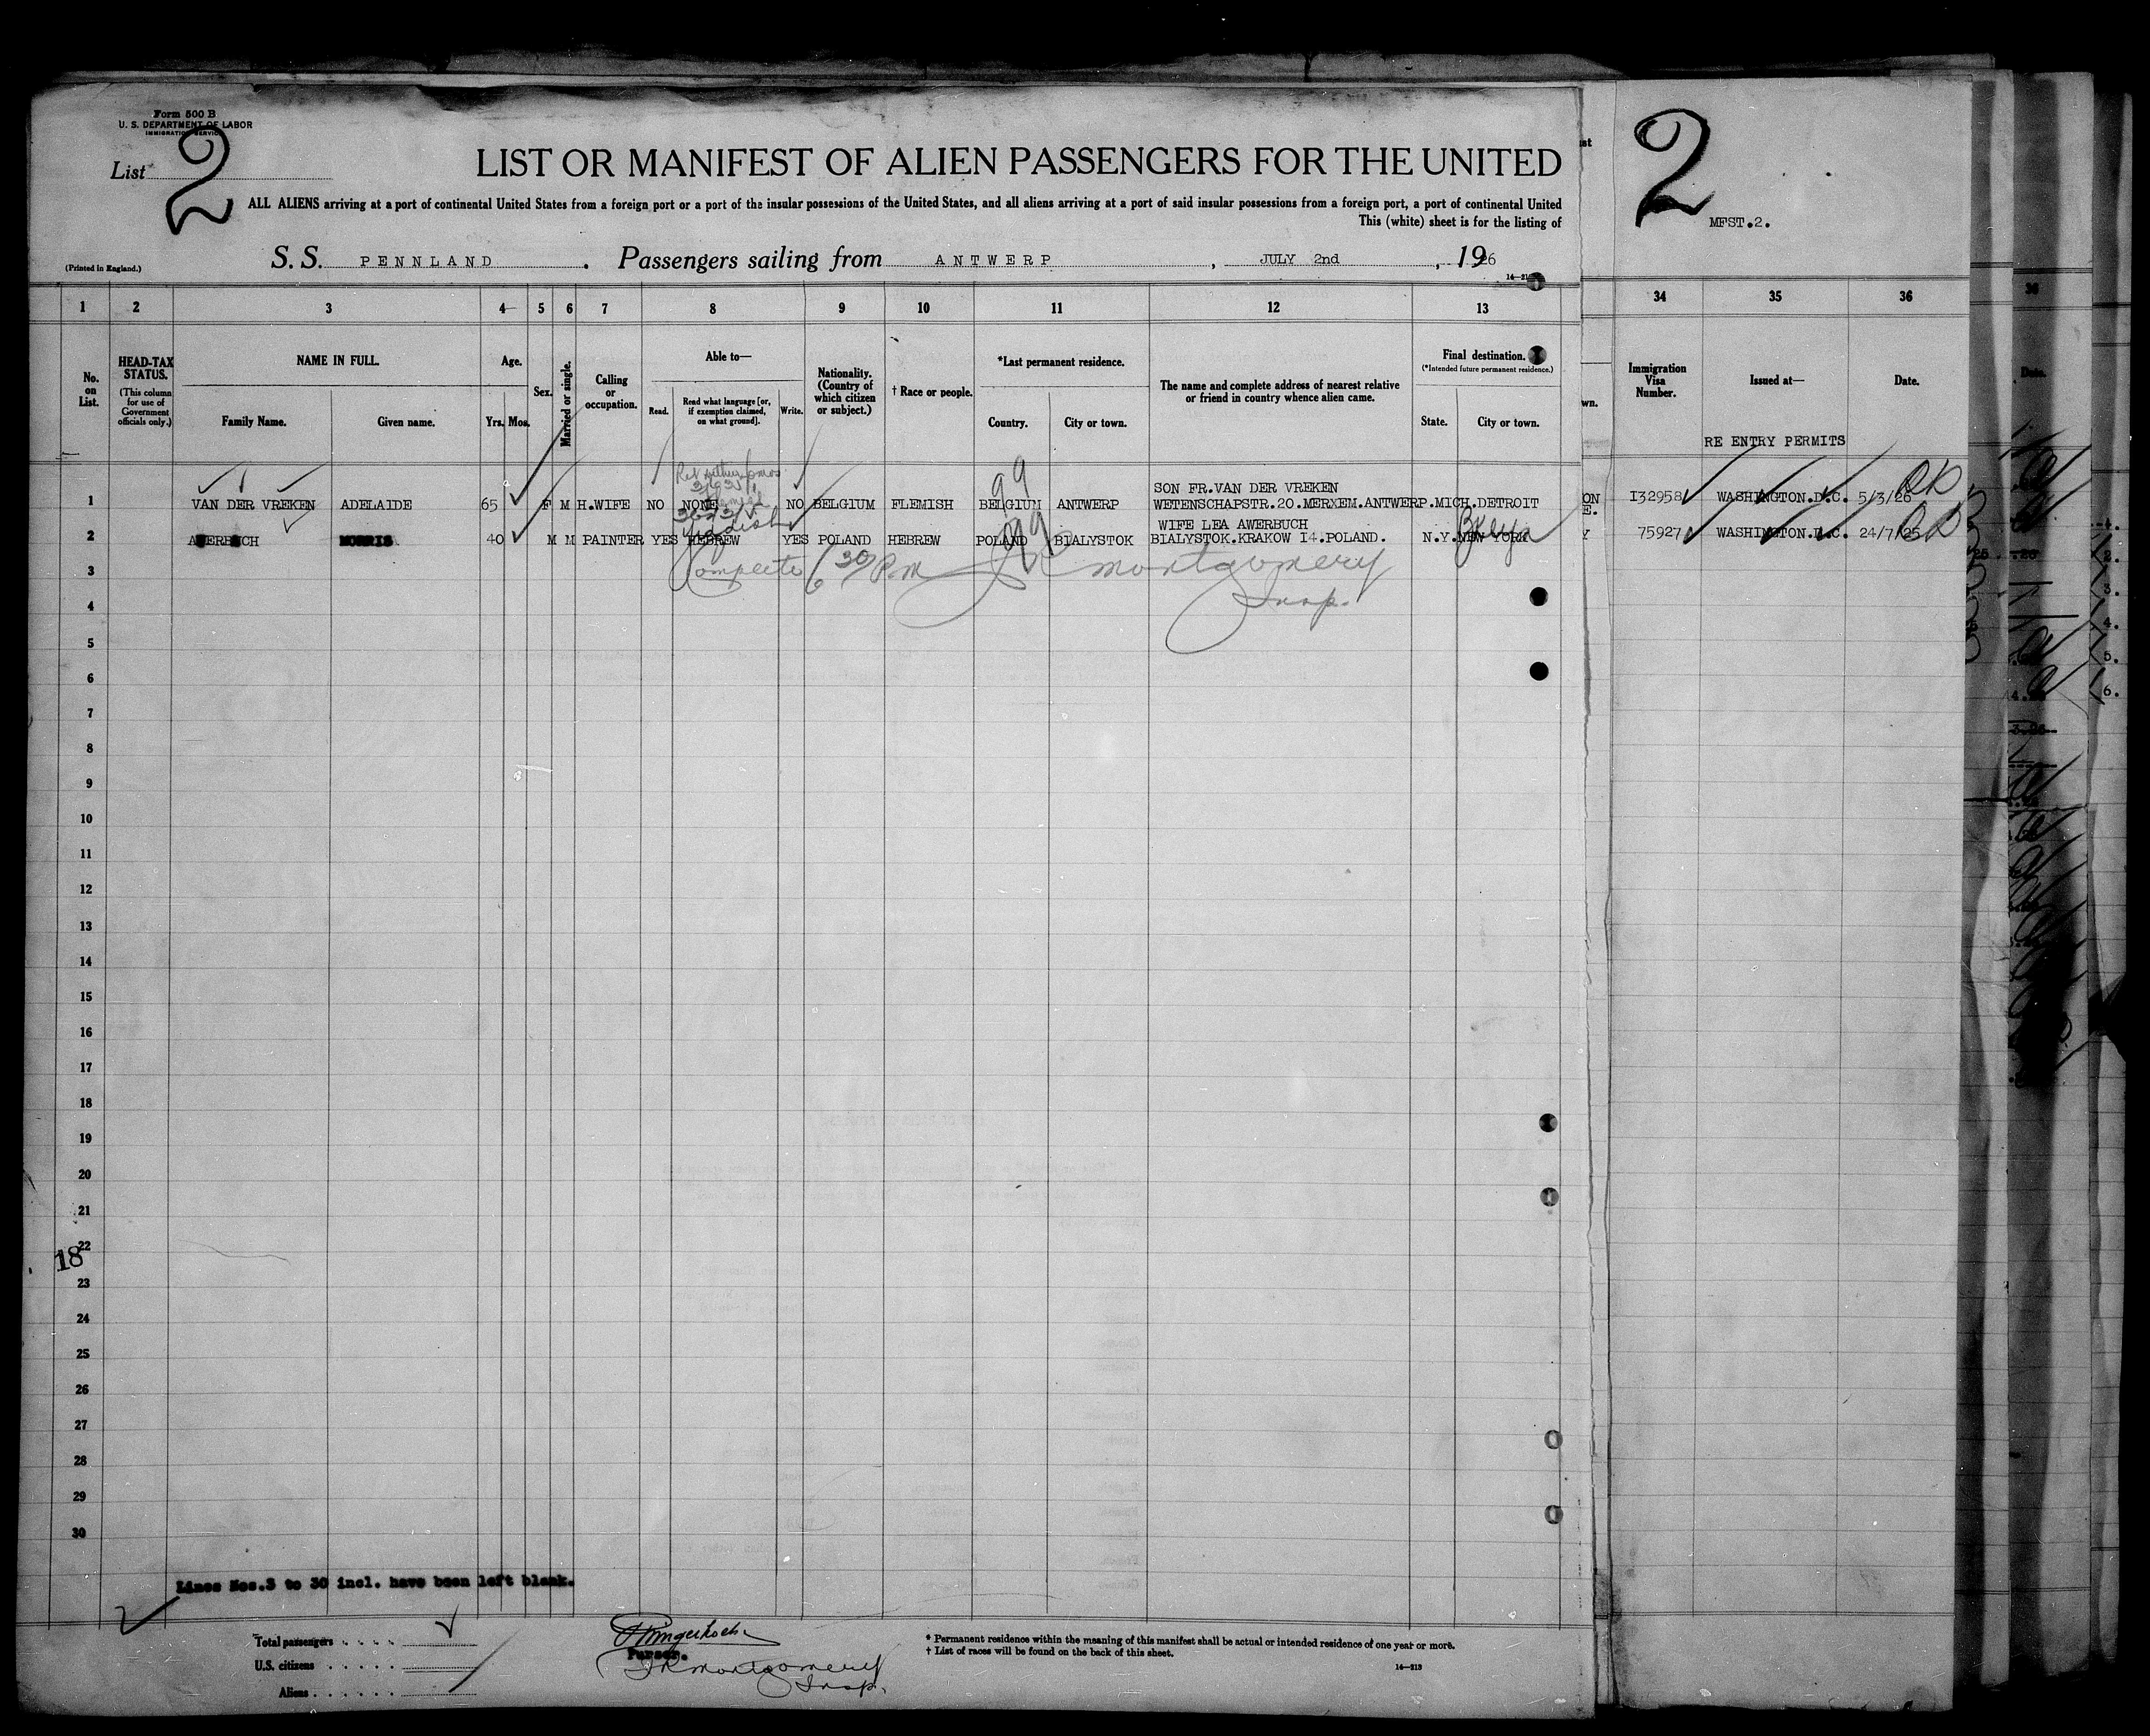 Form 500 B
U. S. DEPARTMENT OF LABOR
IMMIGRATION SERVICE
List 2
LIST OR MANIFEST OF ALIEN PASSENGERS FOR THE UNITED
ALL ALIENS arriving at a port of continental United States from a foreign port or a port of the insular possessions of the United States, and all aliens arriving at a port of said insular possessions from a foreign port, a port of continental United
This (white) sheet is for the listing of
(Printed in England.)
S. S. PENNLAND . Passengers sailing from ANTWERP , JULY 2nd , 1926
2
MFST.2.
1 2 3 4 5 6 7 8 9 10 11 12 13 34 35 36
No. on List.
HEAD-TAX STATUS.
(This column for use of Government officials only.)
NAME IN FULL.
Family Name. Given name.
Age.
Yrs. Mos.
Sex.
Married or single.
Calling or occupation.
Able to—
Read. Read what language [or, if exemption claimed, on what ground]. Write.
Nationality. (Country of which citizen or subject.)
† Race or people.
*Last permanent residence.
Country. City or town.
The name and complete address of nearest relative or friend in country whence alien came.
Final destination.
(*Intended future permanent residence.)
State. City or town.
Immigration Visa Number.
Issued at—
Date.
RE ENTRY PERMITS
1 VAN DER VREKEN ADELAIDE 65 F M H.WIFE NO NONE NO BELGIUM FLEMISH BELGIUM ANTWERP SON FR.VAN DER VREKEN
WETENSCHAPSTR.20.MERXEM.ANTWERP. MICH. DETROIT I32958 WASHINGTON.D.C. 5/3/26 OK
99
2 AWERBUCH MORRIS 40 M M PAINTER YES HEBREW YES POLAND HEBREW POLAND BIALYSTOK WIFE LEA AWERBUCH
BIALYSTOK.KRAKOW I4.POLAND. N.Y. NEW YORK 75927 WASHINGTON.D.C. 24/7/25 OK
Yiddish
99
Complete 6 30 PM Montgomery
Insp.
3
4
5
6
7
8
9
10
11
12
13
14
15
16
17
18
19
20
21
22
18
23
24
25
26
27
28
29
30
Lines Nos.3 to 30 incl. have been left blank.
Total passengers
U.S. citizens
Aliens
Purser.
Montgomery
Insp.
* Permanent residence within the meaning of this manifest shall be actual or intended residence of one year or more.
† List of races will be found on the back of this sheet.
14—213